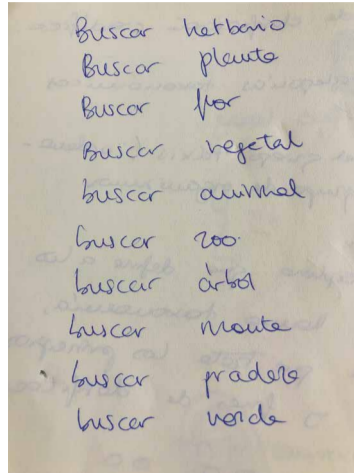 Buscar herbario
Buscar planta
Buscar flor
Buscar vegetal
buscar animal
buscar zoo
buscar árbol
buscar monte
buscar pradera
buscar verde